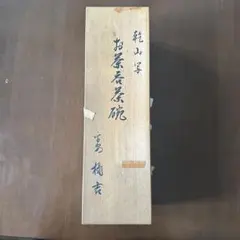 乾山写
お茶呑茶碗
楠吉